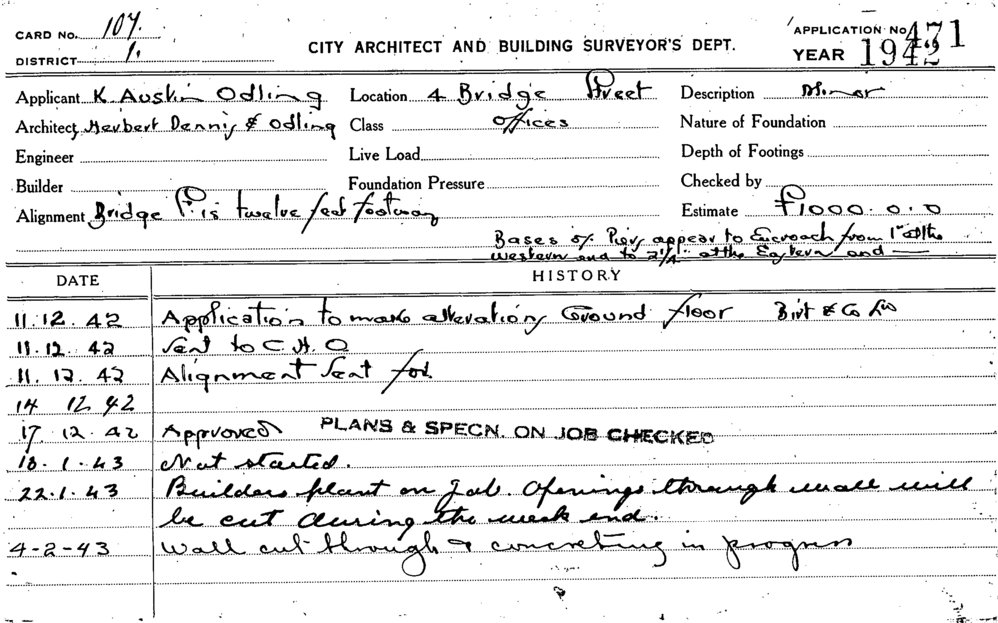 CARD NO. 107.
APPLICATION No 471
DISTRICT 1.
CITY ARCHITECT AND BUILDING SURVEYOR'S DEPT.
YEAR 1942
Applicant K Austin Odling
Location 4 Bridge Street
Description Minor
Architect Herbert Dennis & Odling
Class Offices
Nature of Foundation
Engineer
Live Load
Depth of Footings
Builder
Foundation Pressure
Checked by
Alignment Bridge St. is twelve feet footway
Estimate £1000.0.0
Bases of Piers appear to Encroach from 1" at the
western end to 2¼" at the Eastern end —
DATE HISTORY
11.12.42 Application to make alterations Ground floor Birt & Co Ltd
11.12.42 Sent to C.H.O
11.12.42 Alignment sent for
14 12 42
17.12.42 Approved PLANS & SPECN. ON JOB CHECKED
18.1.43 Not started.
22.1.43 Builders plant on job. Openings through wall will
be cut during the week end.
4-2-43 Wall cut through & concreting in progress